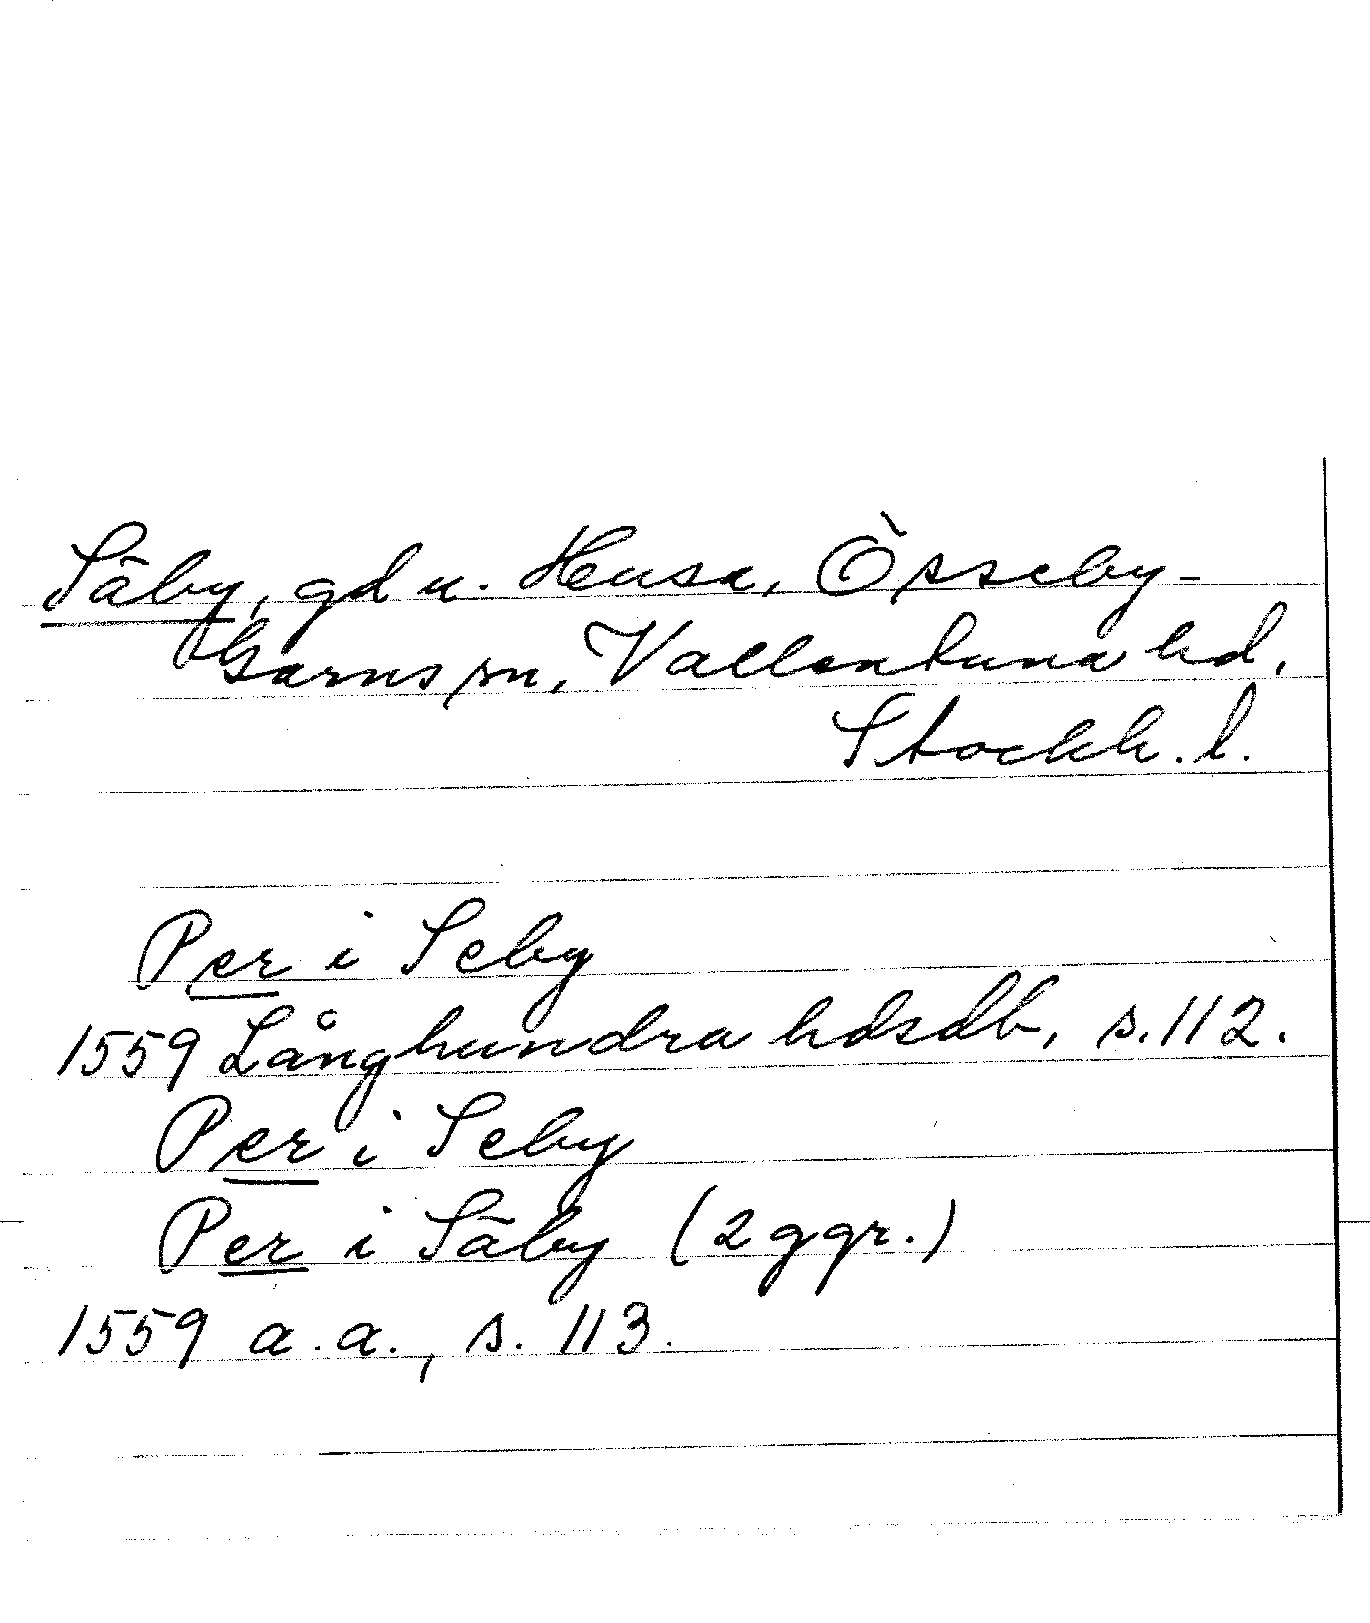 Säby, gd u. Husa, Össeby-
Garns sn, Vallentuna hd,
Stockh. l.
Per i Seby
1559 Långhundra hdsdb, s. 112.
Per i Seby
Per i Säby (2 ggr.)
1559 a.a., s. 113.